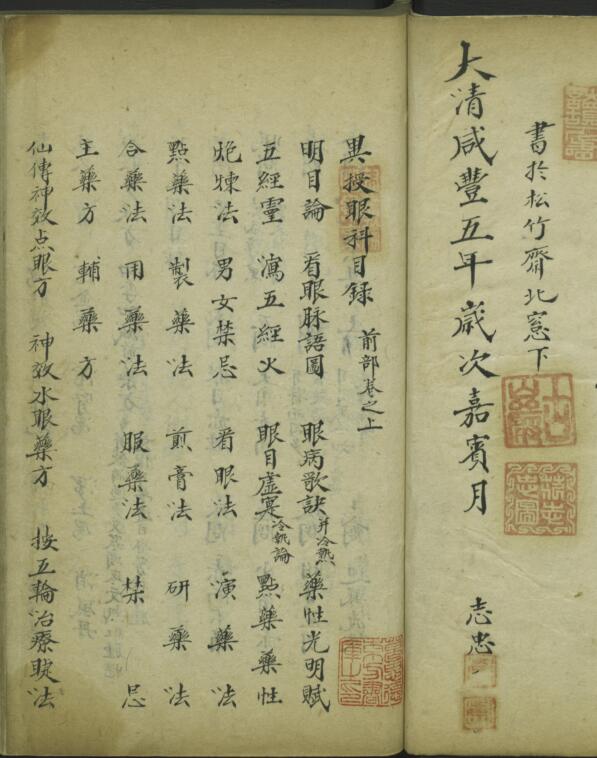 大清咸豐五年歲次嘉賓月 志忠
書於松竹齋北窓下
異授眼科目錄 前部卷之上
明目論 看眼脉語圖 眼病歌訣并冷熱 藥性光明賦
五經靈 瀉五經火 眼目虛寔冷熱論 點藥藥性
炮煉法 男女禁忌 看眼法 演藥法
點藥法 製藥法 煎膏法 研藥法
合藥法 用藥法 服藥法 禁忌
主藥方 輔藥方
仙傳神效点眼方 神效水眼藥方 按五輪治療法